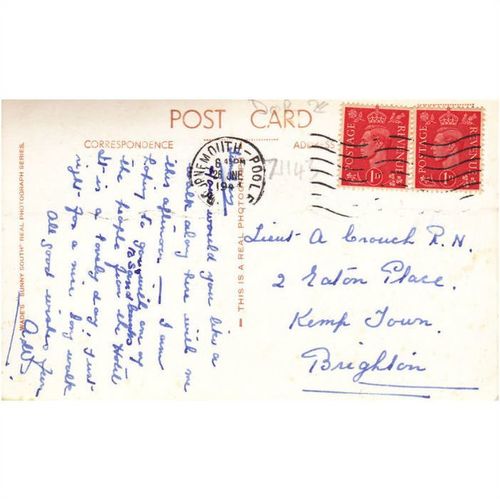 POST CARD
CORRESPONDENCE
ADDRESS
BOURNEMOUTH-POOLE
6 45PM
26 JNE
194
POSTAGE
REVENUE
1D
1D
POSTAGE
REVENUE
1D
1D
71143
would you like a
walk along here with me
this afternoon — I am
going to Sandbanks
with one of
the people from the Hotel
It is a lovely day; Just
right for a nice long walk
All good wishes from
Lieut A Crouch R.N.
2 Eaton Place.
Kemp Town.
Brighton
— THIS IS A REAL PHOTOGRAPH
WADE'S "SUNNY SOUTH" REAL PHOTOGRAPH SERIES.